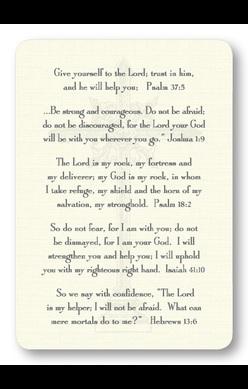 Give yourself to the Lord; trust in him,
and he will help you;   Psalm 37:5
...Be strong and courageous. Do not be afraid;
do not be discouraged, for the Lord your God
will be with you wherever you go." Joshua 1:9
The Lord is my rock, my fortress and
my deliverer; my God is my rock, in whom
I take refuge, my shield and the horn of my
salvation, my stronghold.  Psalm 18:2
So do not fear, for I am with you; do not
be dismayed, for I am your God.  I will
strengthen you and help you; I will uphold
you with my righteous right hand.  Isaiah 41:10
So we say with confidence, "The Lord
is my helper; I will not be afraid.  What can
mere mortals do to me?"   Hebrews 13:6